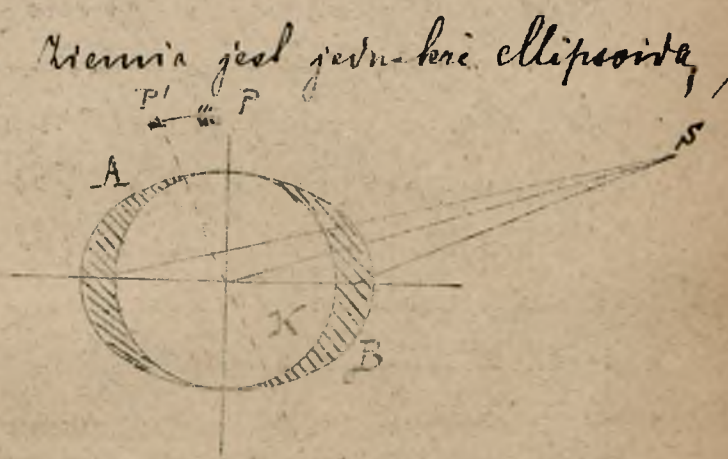 Ziemia jest jednakże elipsoidą,
P' P
S
A
K
B